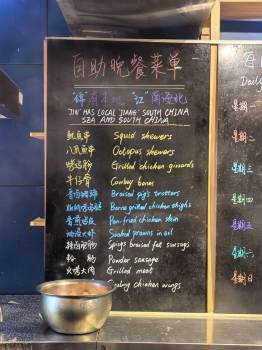 自助晚餐菜单
"锦"有本地 "江"南海北
"JIN" HAS LOCAL "JIANG" SOUTH CHINA
SEA AND SOUTH CHINA
鱿鱼串 Squid skewers
八爪鱼串 Octopus skewers
烤鸡胗 Grilled chicken gizzards
牛仔骨 Cowboy bones
Braised pig's trotters
grilled chicken thighs
香煎鸡皮 Pan-fried chicken skin
油浸大虾 Soaked prawns in oil
Spicy braised fat sausage
粉肠 Powder sausage
火烤大肉 Grilled meat
chicken wings
每日
Daily
星期一
星期二
星期三
星期四
星期五
星期六
星期日